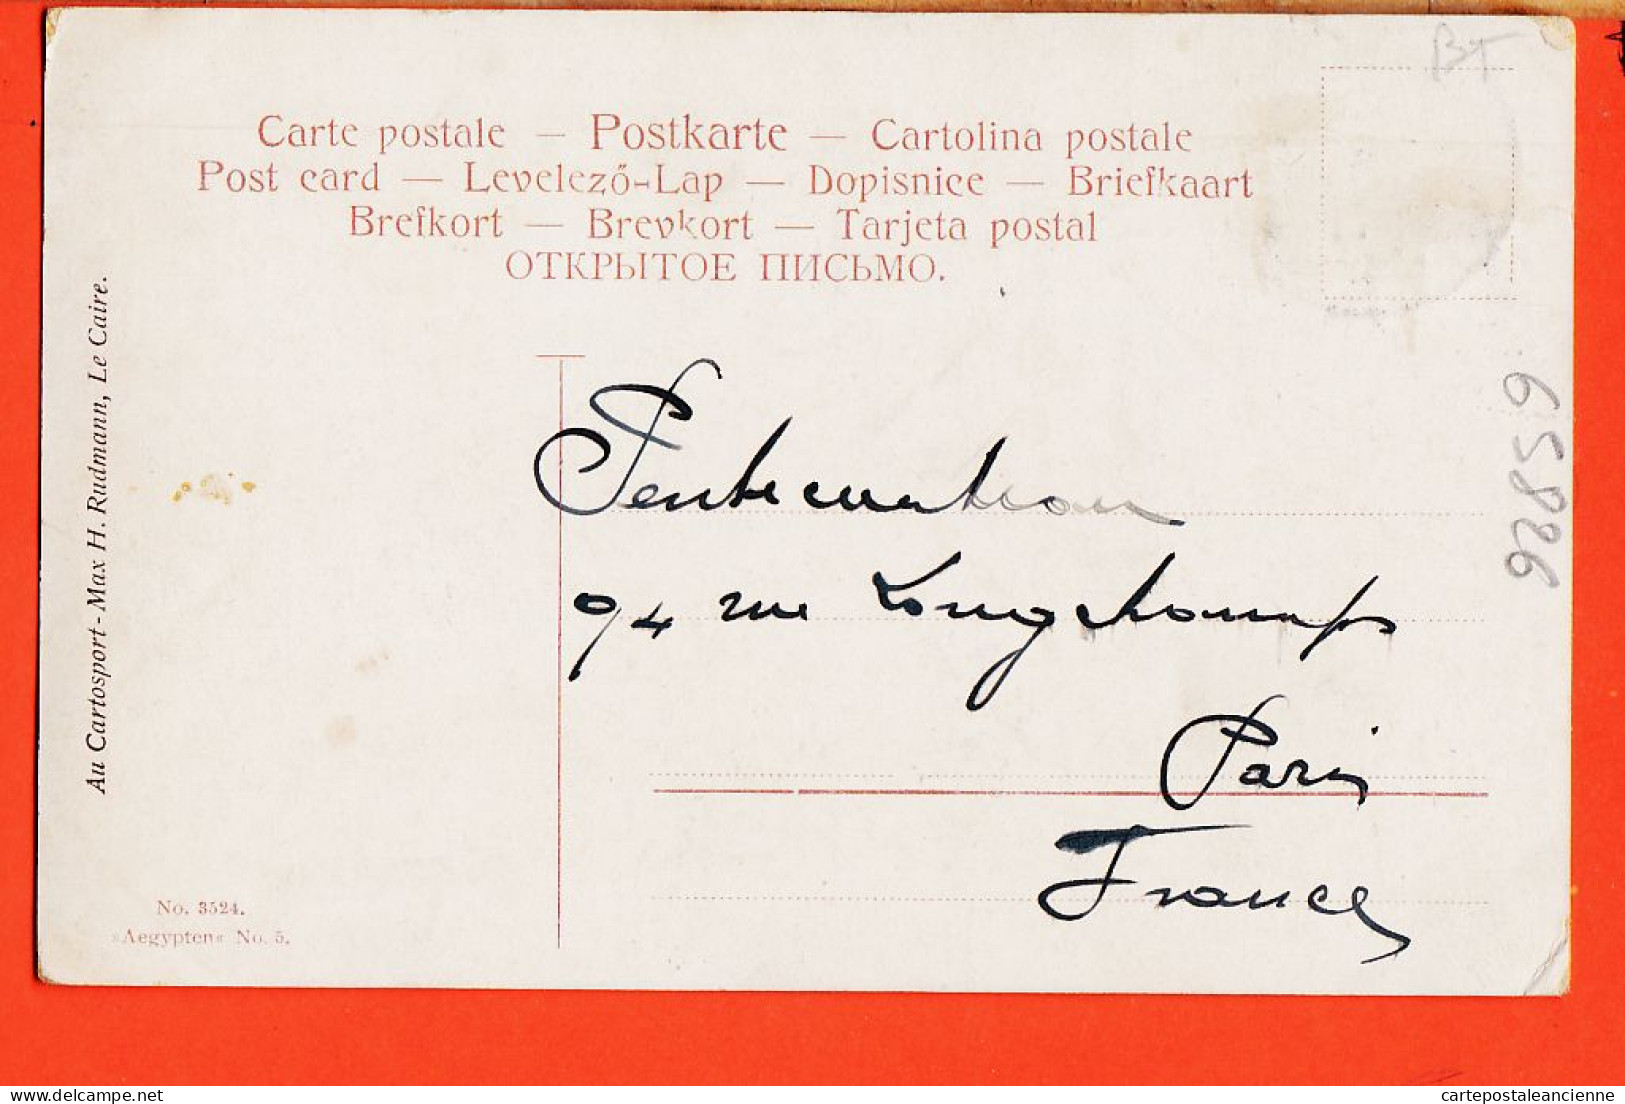 BT
Carte postale — Postkarte — Cartolina postale
Post card — Levelező-Lap — Dopisnice — Briefkaart
Brefkort — Brevkort — Tarjeta postal
ОТКРЫТОЕ ПИСЬМО.
Au Cartosport - Max H. Rudmann, Le Caire.
94 rue Longchamps
Paris
France
65826
No. 3524.
»Aegypten« No. 5.
cartepostaleancienne